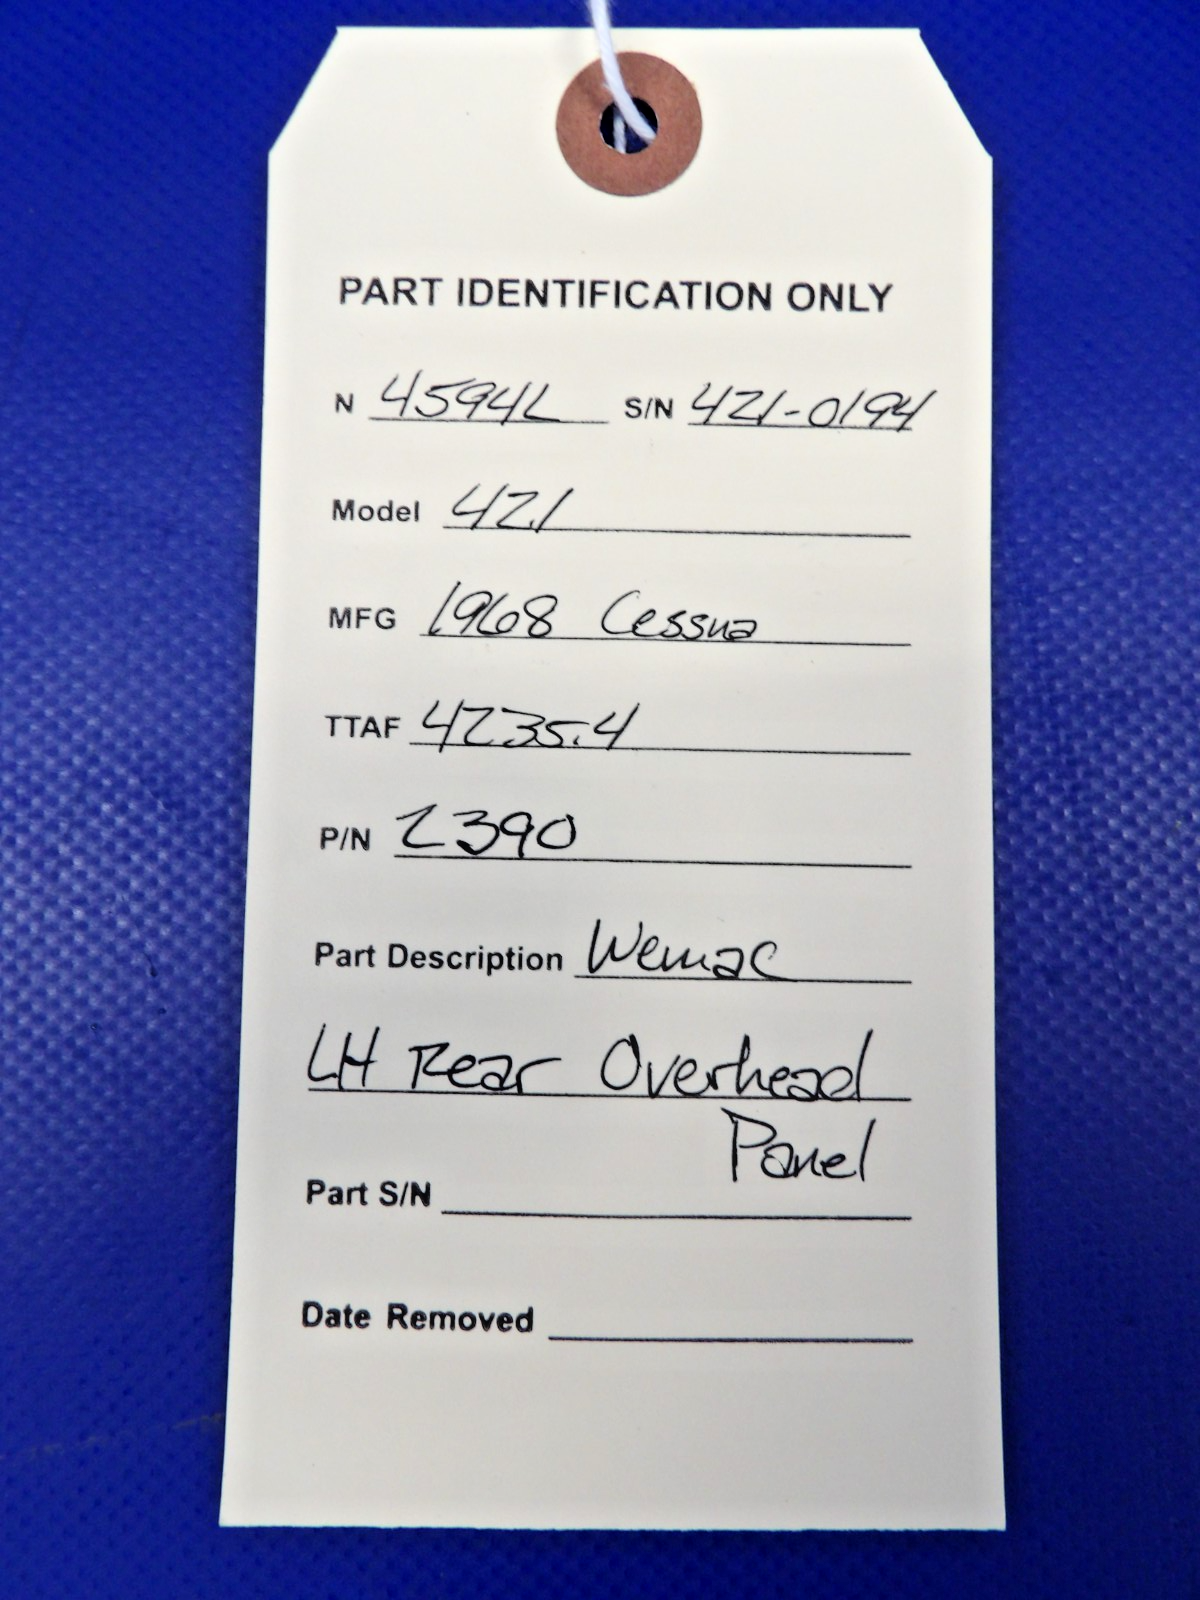 PART IDENTIFICATION ONLY
N 4594L S/N 421-0194
Model 421
MFG 1968 Cessna
TTAF 4235.4
P/N 2390
Part Description Wemac
LH Rear Overhead
Panel
Part S/N
Date Removed